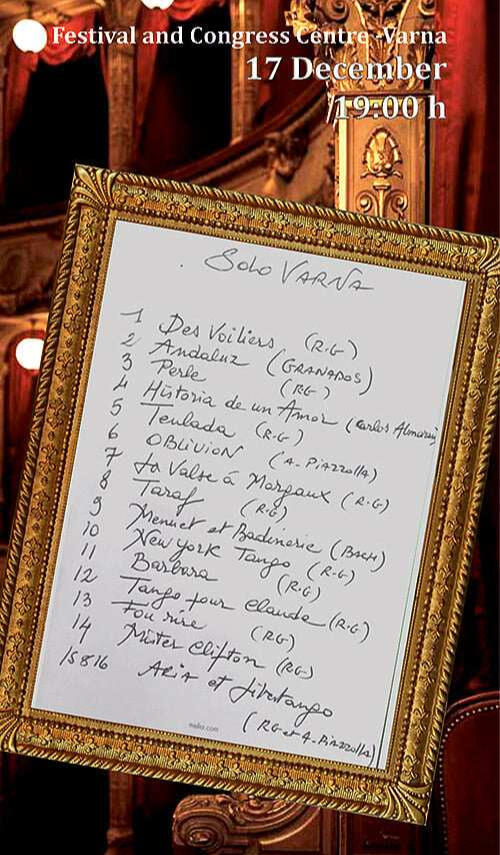 Festival and Congress Centre -Varna
17 December
19.00 h
Solo VARNA
1 Des Voiliers (R.G)
2 Andaluz (GRANADOS)
3 Perle (RG)
4 Historia de un Amor (Carlos
5 Teulada (R.G)
6 OBLIVION (A. PIAZZOLLA)
7 La Valse á Margaux (R.G)
8 Taraf (R.G)
9 Menuet et Badinerie (BACH)
10 New york Tango (R.G)
11 Barbara (R.G)
12 Tango pour Claude (R.G)
13 Fou rire (RG)
14 Mister Clifton (RG)
15&16 ARIA et Libertango
(RG et A. PIAZZOLLA)